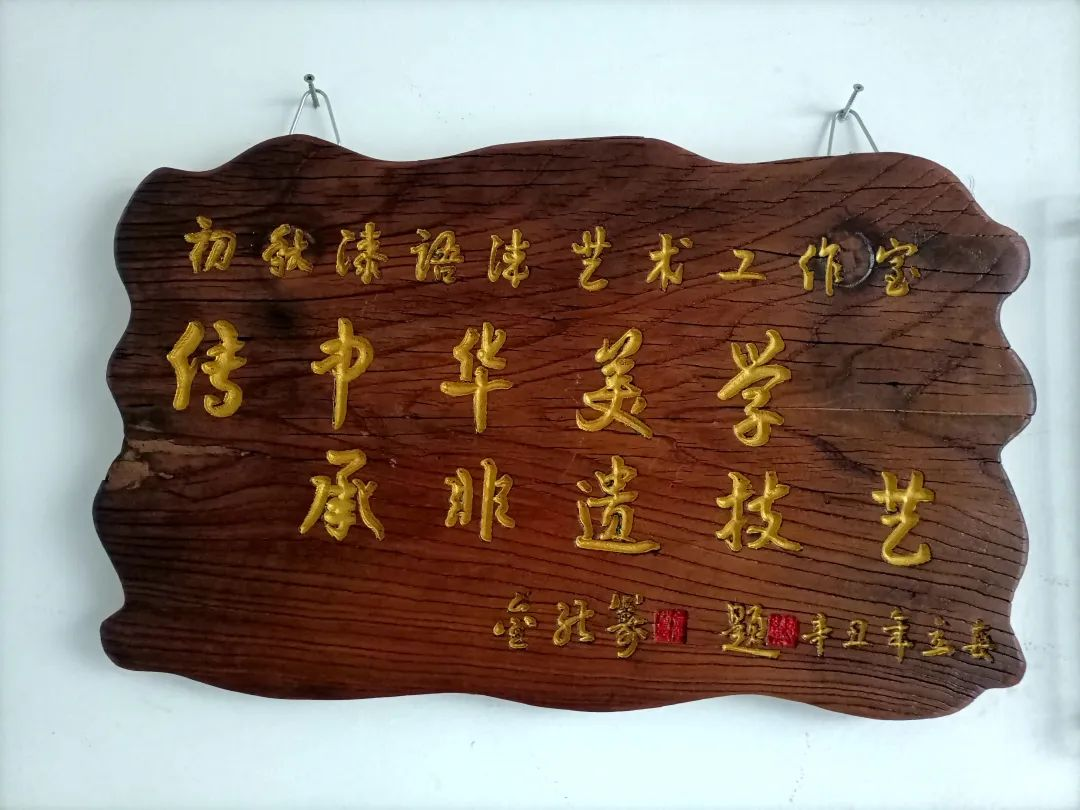 初秋漆语漆艺术工作室
传中华美学
承非遗技艺
金 题 辛丑年立春